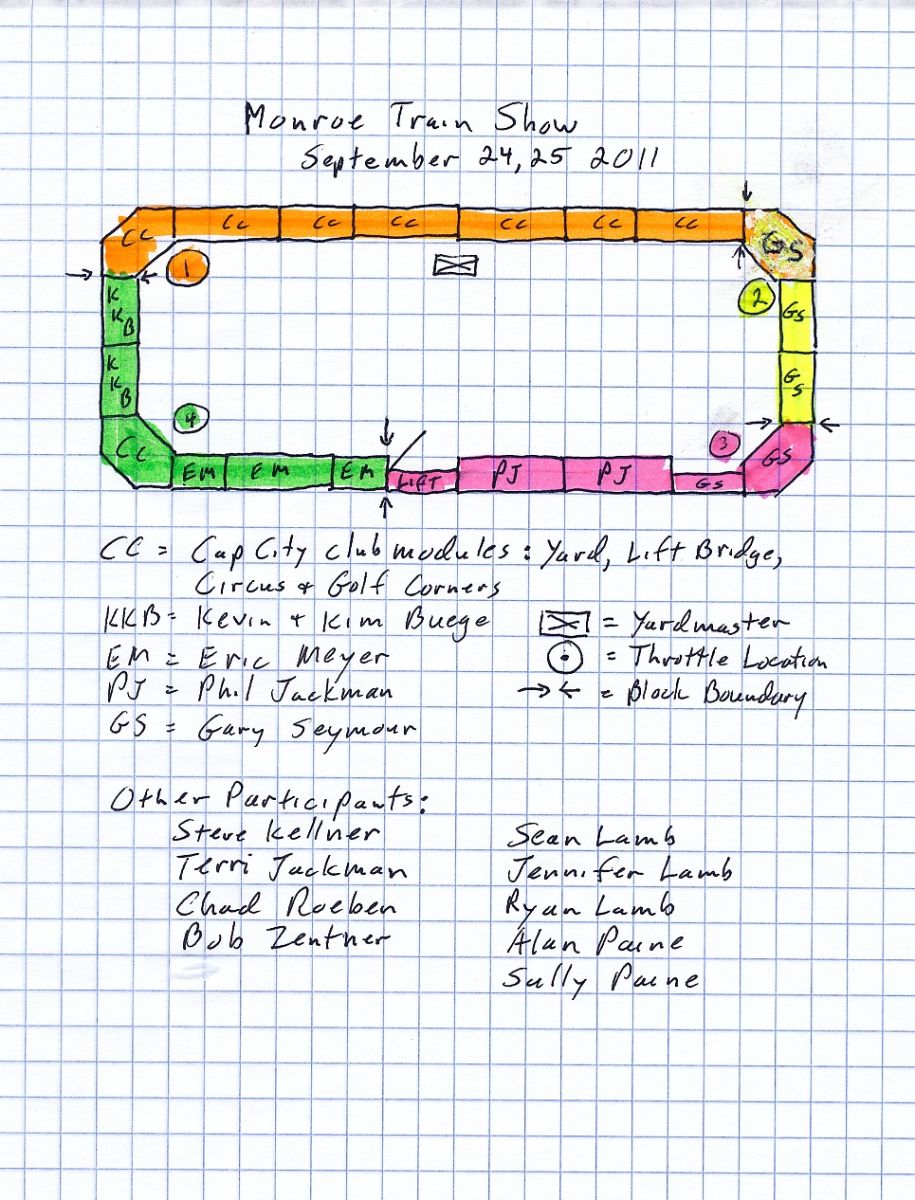 Monroe Train Show
September 24, 25 2011
CC CC CC CC CC CC CC GS
1
KKB
2
GS
KKB
GS
4
3
CC
GS
EM EM EM LIFT PJ PJ GS
CC = Cap City club modules: Yard, Lift Bridge,
Circus + Golf Corners
KKB = Kevin + Kim Buege
= Yardmaster
EM = Eric Meyer
= Throttle Location
PJ = Phil Jackman
→← = Block Boundary
GS = Gary Seymour
Other Participants:
Steve Kellner
Sean Lamb
Terri Jackman
Jennifer Lamb
Chad Roeben
Ryan Lamb
Bob Zentner
Alan Paine
Sally Paine